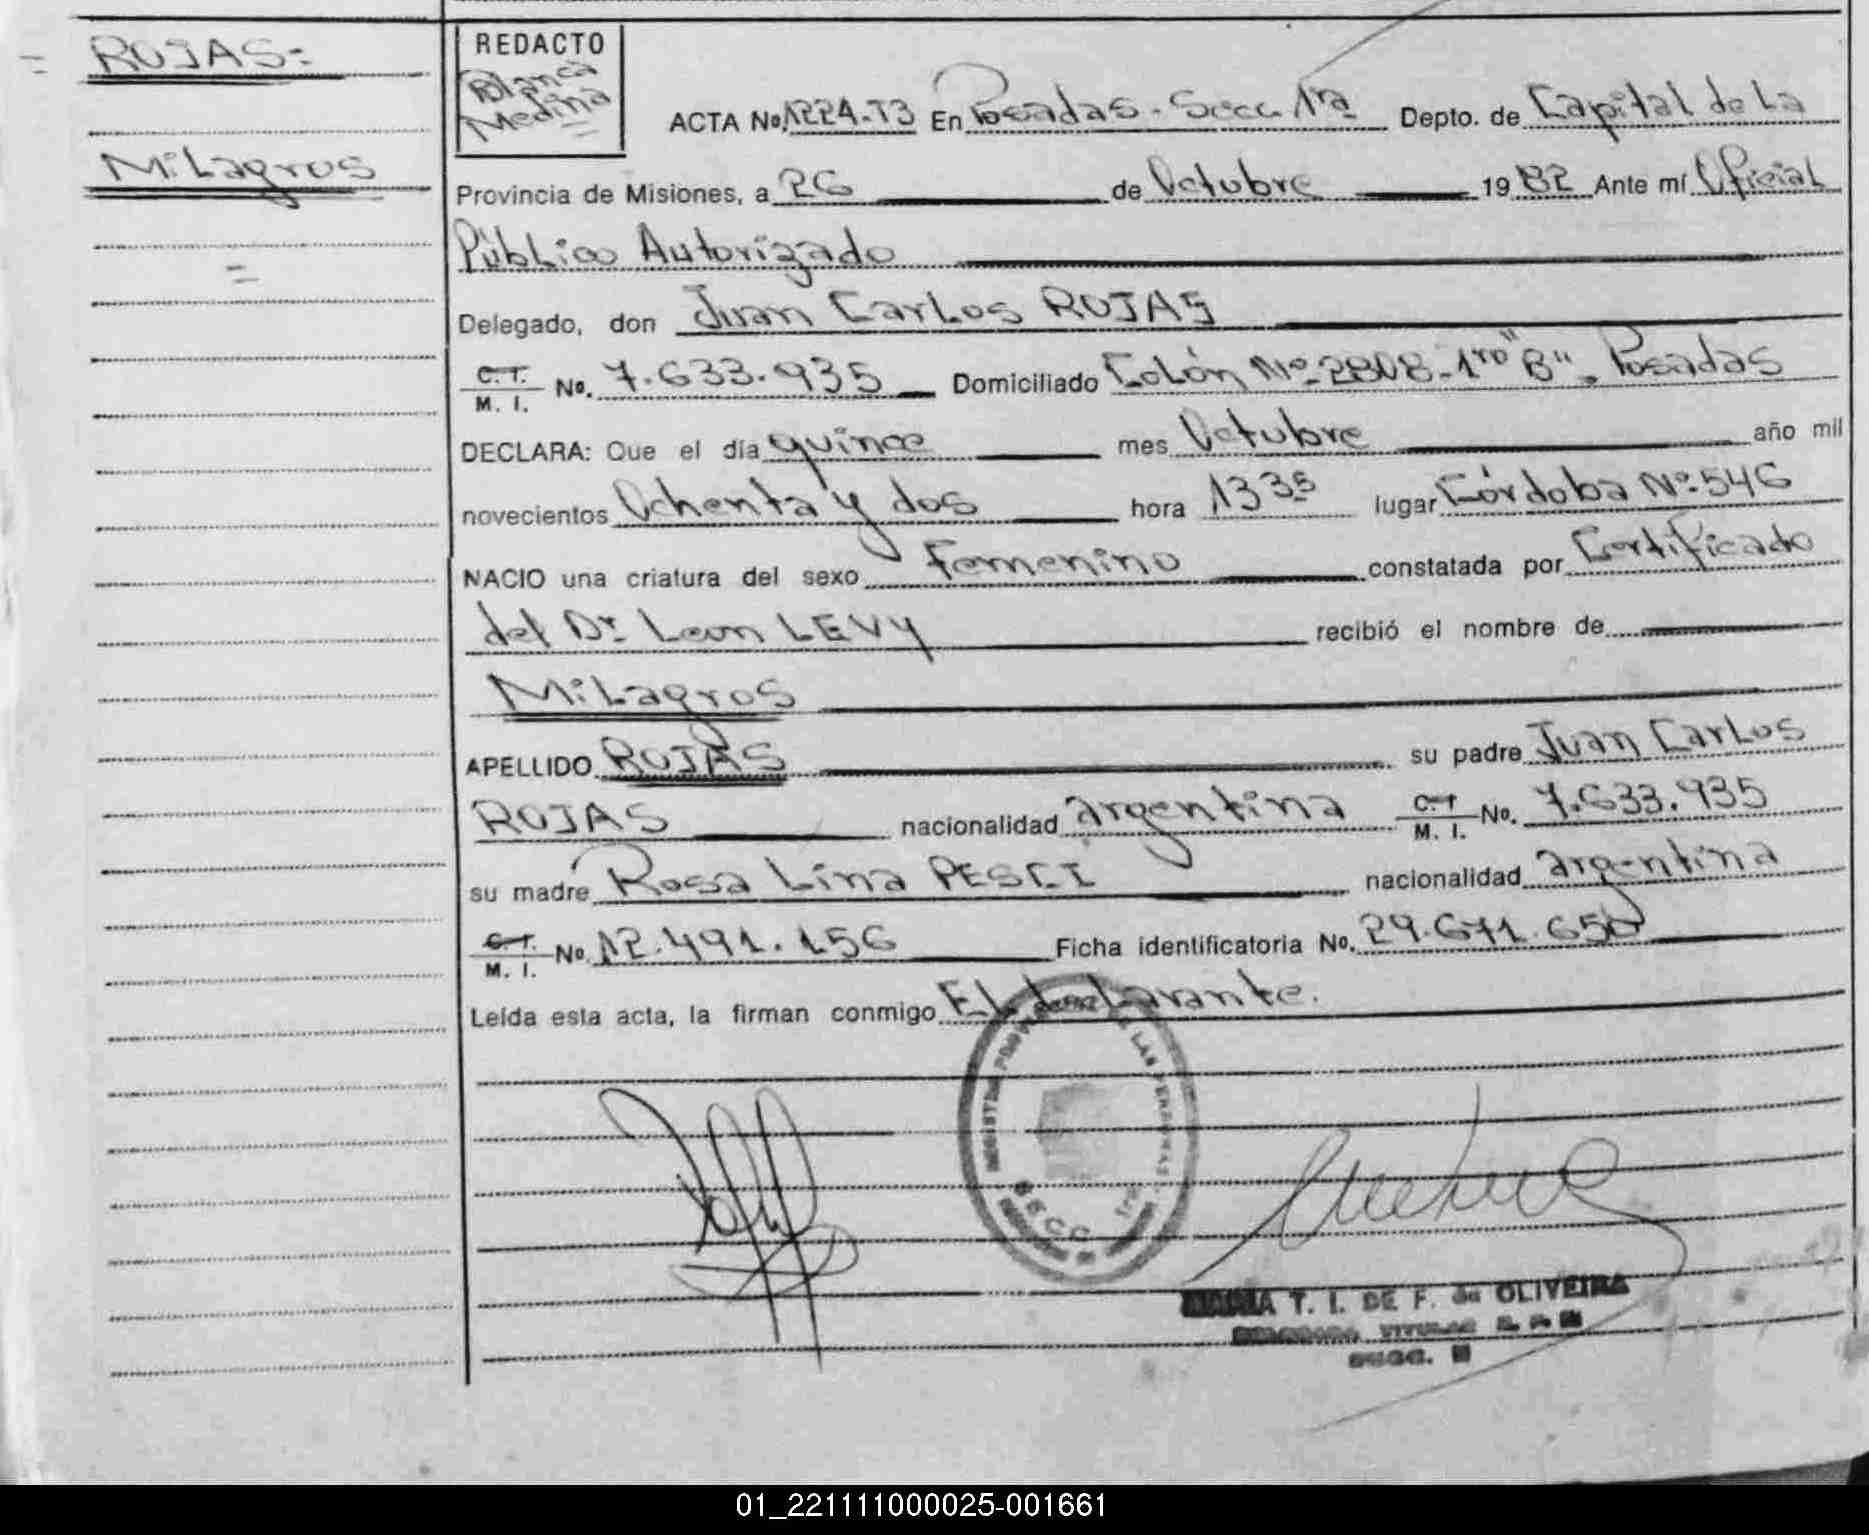 ROJAS=
Milagros
=
REDACTO
Blanca
Medina
ACTA No. 1224-T3 En Posadas-Secc. 1ra Depto. de Capital de La
Provincia de Misiones, a 26 de Octubre 1982 Ante mí Oficial
Público Autorizado
Delegado, don Juan Carlos ROJAS
C. I. M. I. No. 7.633.935 Domiciliado Colón Nº-2808-1ro "B", Posadas
DECLARA: Que el día quince mes Octubre año mil
novecientos Ochenta y dos hora 1335 lugar Córdoba Nº-546
NACIO una criatura del sexo Femenino constatada por Certificado
del Dr. Leon LEVY recibió el nombre de
Milagros
APELLIDO ROJAS su padre Juan Carlos
ROJAS nacionalidad argentina C. I. M. I. No. 7.633.935
su madre Rosa Lina PESCI nacionalidad argentina
C. I. M. I. No. 12.491.156 Ficha identificatoria No. 29.671.650
Leída esta acta, la firman conmigo El declarante.
LAS PERSONAS
SECC. 1ra
MARIA T. I. DE F. de OLIVEIRA
01_221111000025-001661